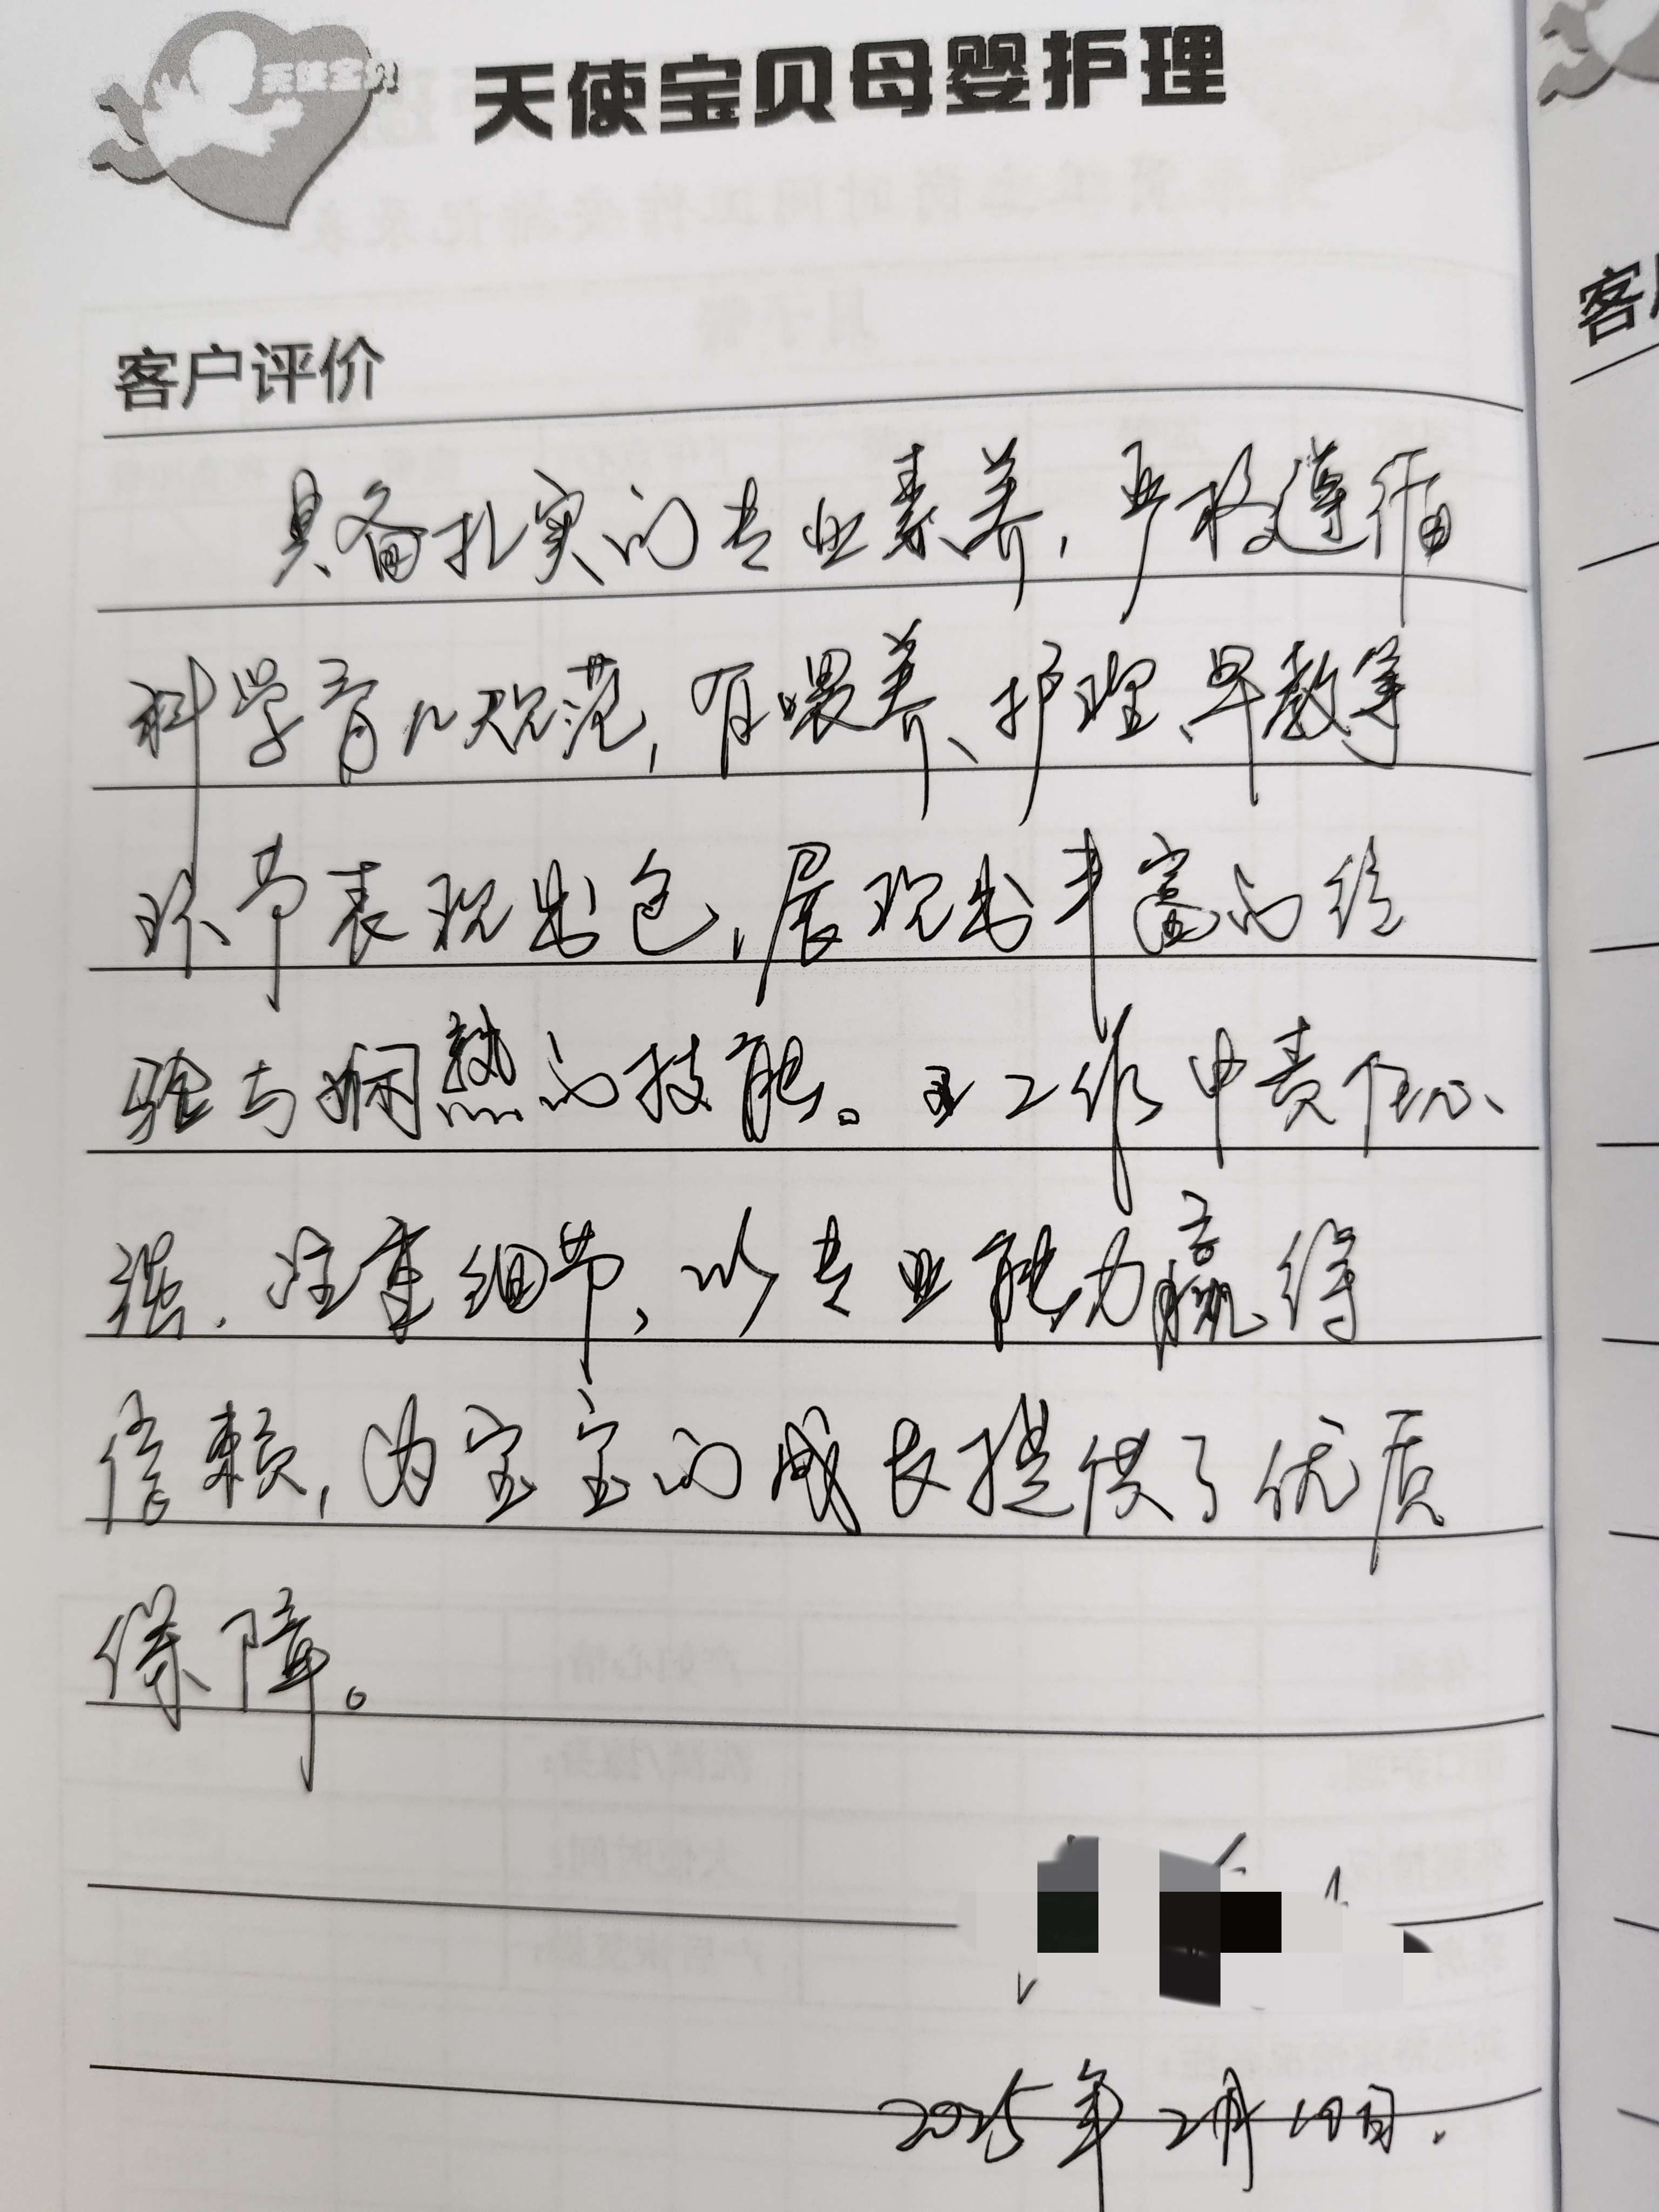 天使宝贝
天使宝贝母婴护理
客户评价
具备扎实的专业素养，严格遵循
科学育儿规范，在喂养、护理、早教等
环节表现出色，展现出丰富的经
验与娴熟的技能。工作中责任心
强，注重细节，以专业能力赢得
信赖，为宝宝的成长提供了优质
保障。
2025年2月 日.
客